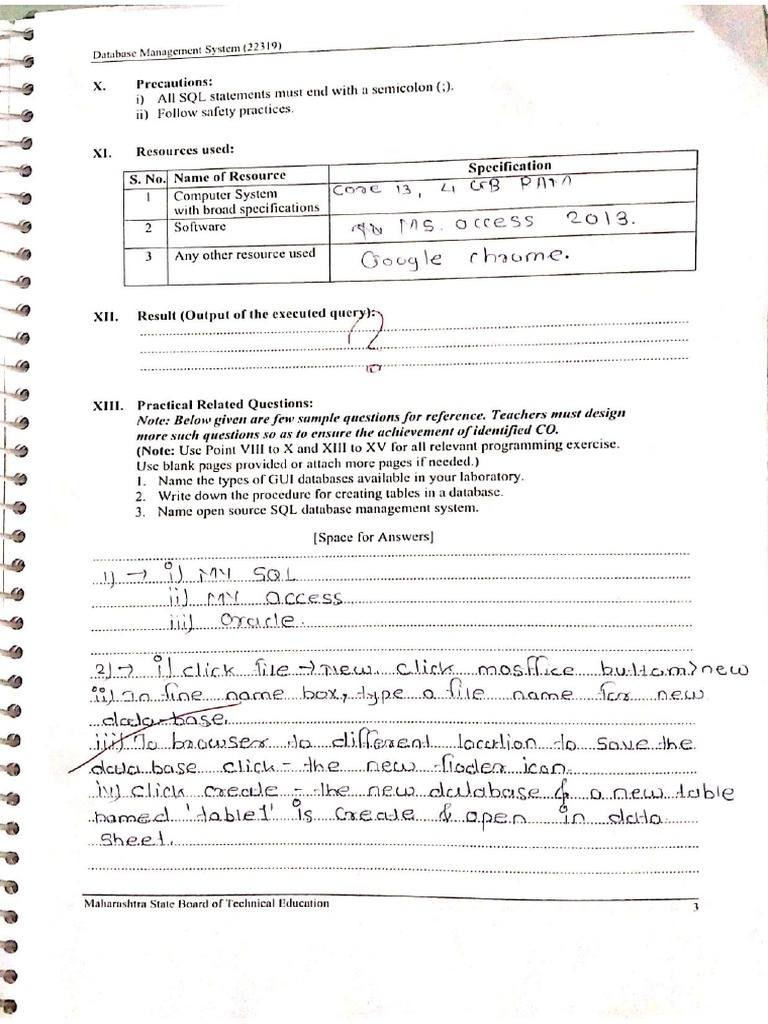 Database Management System (22319)
X. Precautions:
i) All SQL statements must end with a semicolon (;).
ii) Follow safety practices.
XI. Resources used:
S. No. Name of Resource Specification
1 Computer System with broad specifications Core i3, 4 GB
2 Software MS. access 2013.
3 Any other resource used Google chrome.
XII. Result (Output of the executed query):
XIII. Practical Related Questions:
Note: Below given are few sample questions for reference. Teachers must design
more such questions so as to ensure the achievement of identified CO.
(Note: Use Point VIII to X and XIII to XV for all relevant programming exercise.
Use blank pages provided or attach more pages if needed.)
1. Name the types of GUI databases available in your laboratory.
2. Write down the procedure for creating tables in a database.
3. Name open source SQL database management system.
[Space for Answers]
1) → i) MY SQL
ii) MY access
iii) Oracle.
2) → i) click file → new. click mosffice buttom > new
ii) In fine name box, type a file name for new
database.
iii) To browser to different location to save the
data base click - the new floder icon.
iv) click create - the new database & a new table
named 'table1' is create & open in data
sheet.
Maharashtra State Board of Technical Education 3